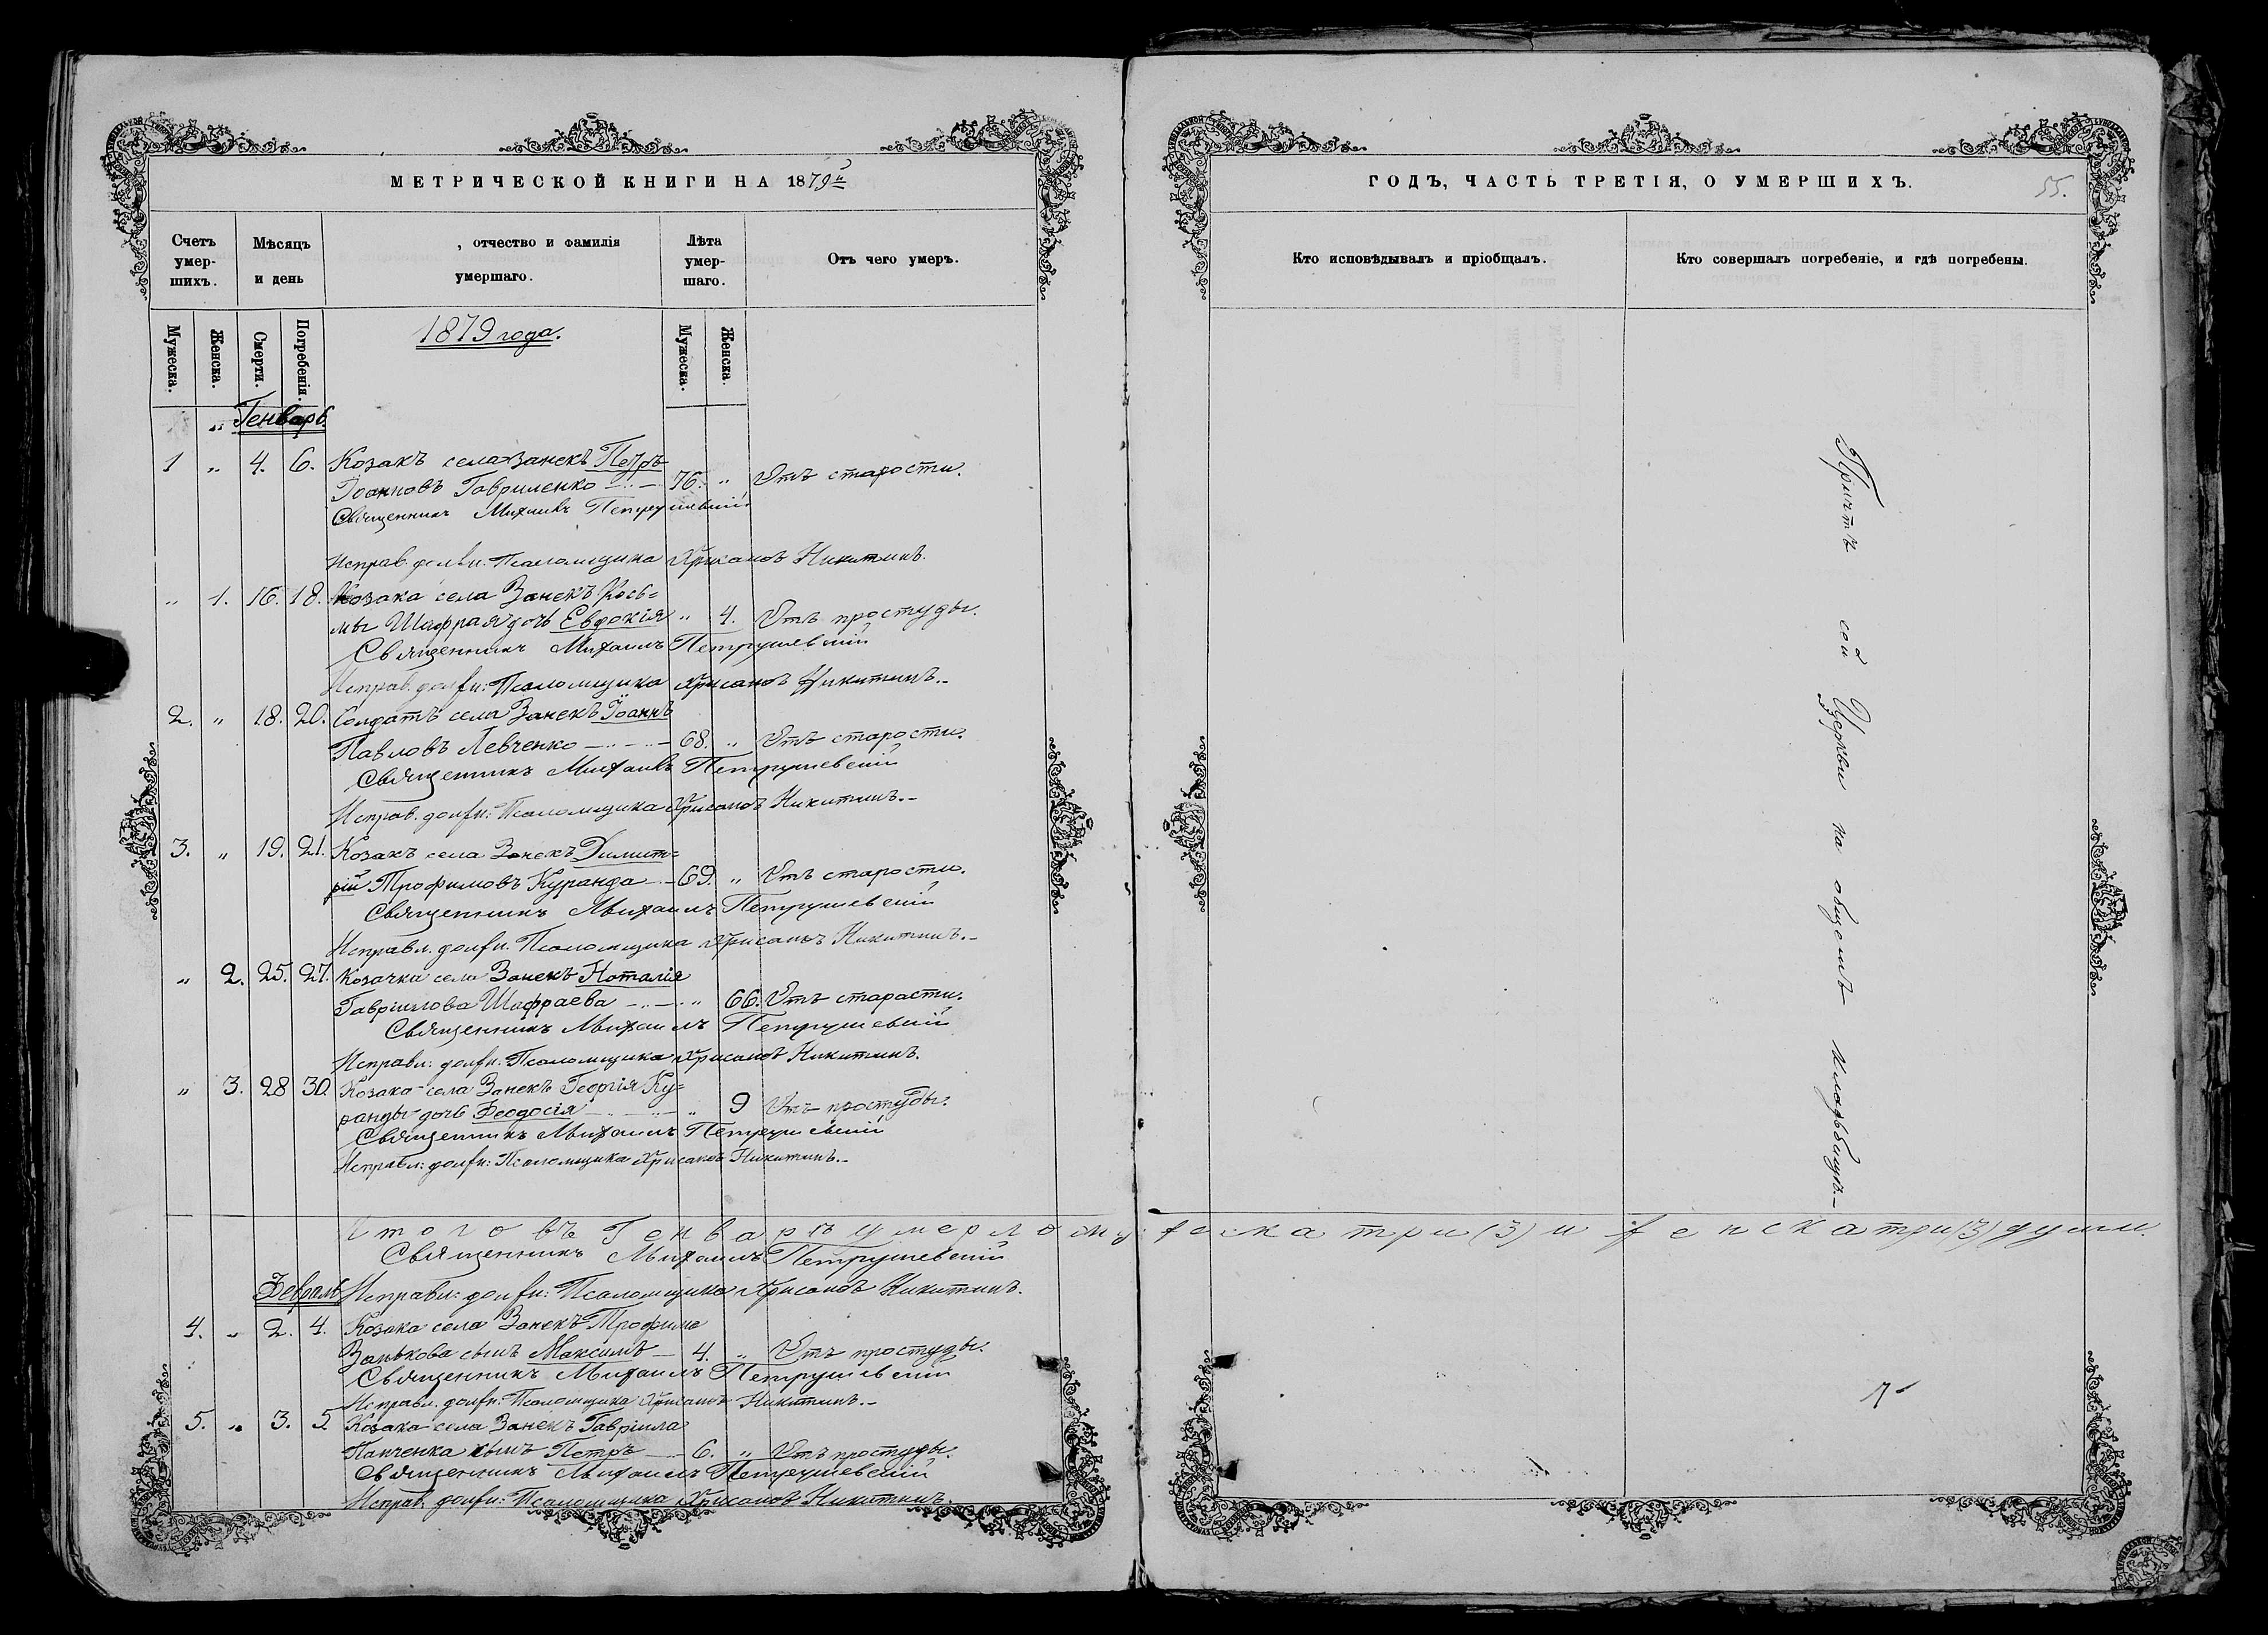 МЕТРИЧЕСКОЙ КНИГИ НА 1879й
Счетъ умер-шихъ.
Мѣсяцъ и день
, отчество и фамилія умершаго.
Лѣта умер-шаго.
Отъ чего умеръ.
Мужеска.
Женска.
Смерти.
Погребенія.
1879 года.
Мужеска.
Женска.
„ Генварь
1 „ 4. 6. Козакъ села Занекъ Петръ
Іоанновъ Гавриленко 76. „ Отъ старости.
Священникъ Михаилъ Петрушевскій
Исправ. должн: Псаломщика Хрисанѳъ Никитинъ.
„ 1. 16. 18. Козака села Занекъ Кось=
мы Шафрая дочь Евдокія „ 4. Отъ простуды.
Священникъ Михаилъ Петрушевскій
Исправ. должн: Псаломщика Хрисанѳъ Никитинъ.
2. „ 18. 20. Солдатъ села Занекъ Іоаннъ
Павловъ Левченко 68. „ Отъ старости.
Священникъ Михаилъ Петрушевскій
Исправ. должн: Псаломщика Хрисанѳъ Никитинъ.
3. „ 19. 21. Козакъ села Занекъ Димит=
рій Трофимовъ Куранда 69. „ Отъ старости.
Священникъ Михаилъ Петрушевскій
Исправл. должн. Псаломщика Хрисанѳъ Никитинъ.
„ 2. 25. 27. Козачка села Занекъ Наталія
Гавріилова Шафраева „ 66. Отъ старасти.
Священникъ Михаилъ Петрушевскій
Исправл: должн: Псаломщика Хрисанѳъ Никитинъ.
„ 3. 28 30. Козака села Занекъ Георгія Ку=
ранды дочь Ѳеодосія „ 9 Отъ простуды.
Священникъ Михаилъ Петрушевскій
Исправл: должн: Псаломщика Хрисанѳъ Никитинъ.
Итого въ Генварѣ умерло мужеска три (3) и женска три (3) души.
Священникъ Михаилъ Петрушевскій
Февраль Исправл: должн: Псаломщика Хрисанѳъ Никитинъ.
4. „ 2. 4. Козака села Занекъ Трофима
Занькова сынъ Максимъ 4. „ Отъ простуды.
Священникъ Михаилъ Петрушевскій
Исправл. должн: Псаломщика Хрисанѳъ Никитинъ.
5. „ 3. 5. Козака села Занекъ Гавріила
Панченка сынъ Петръ 6. „ Отъ простуды.
Священникъ Михаилъ Петрушевскій
Исправ. должн: Псаломщика Хрисанѳъ Никитинъ.
ГОДЪ, ЧАСТЬ ТРЕТІЯ, О УМЕРШИХЪ.
55.
Кто исповѣдывалъ и пріобщалъ.
Кто совершалъ погребеніе, и гдѣ погребены.
Причтъ сей Церкви на общемъ кладбищѣ.